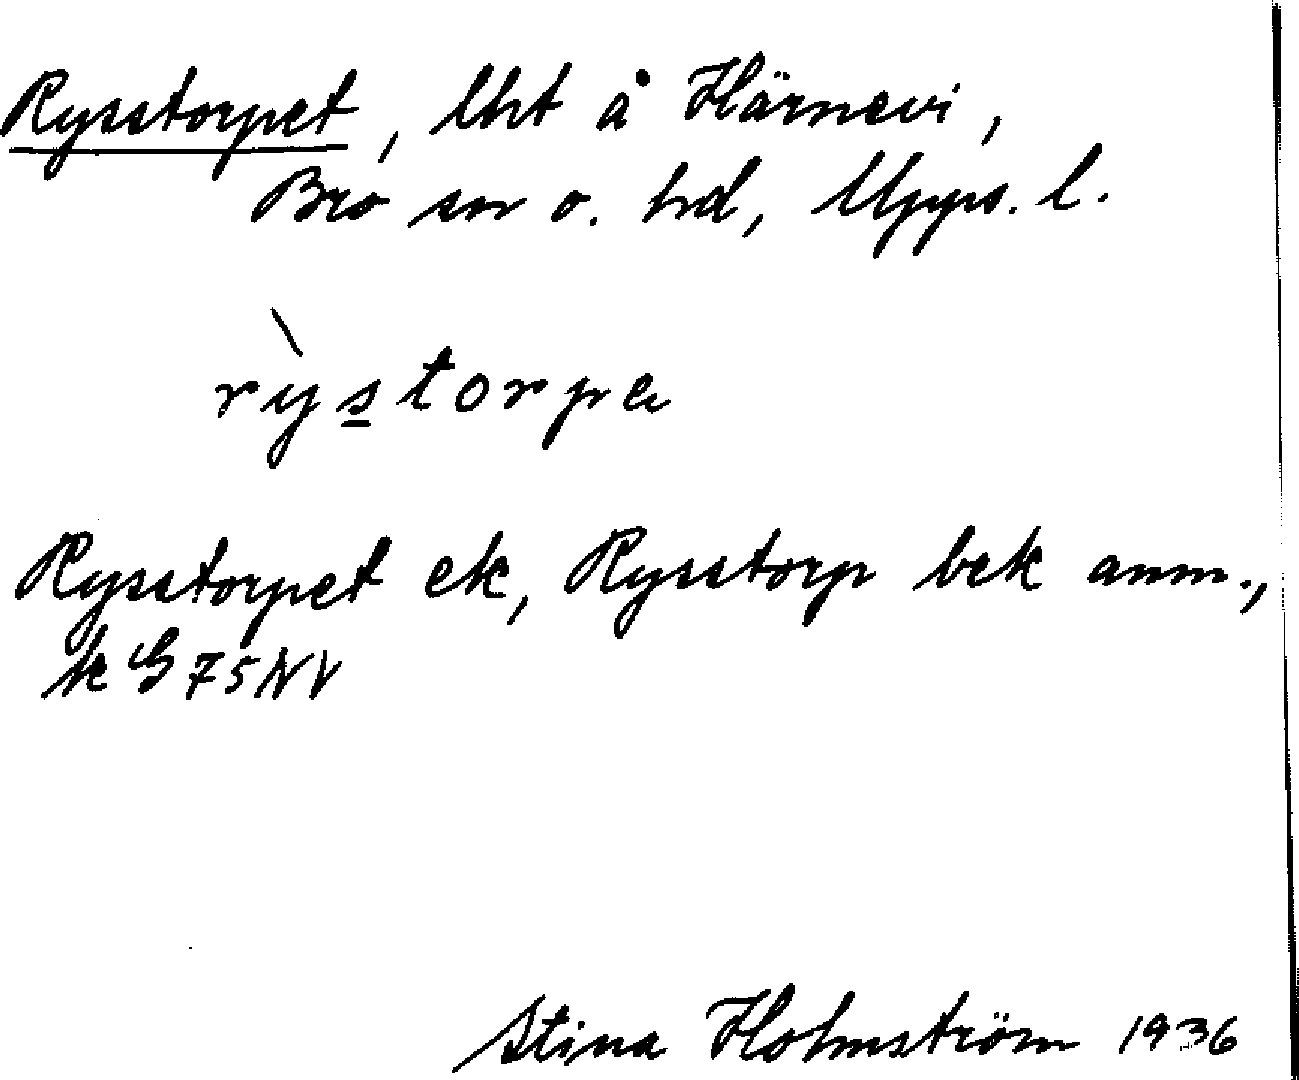 Rysstorpet, lht å Härnevi,
Bro sn o. hd, Upps. l.
rỳstorpe
Rysstorpet ek, Rysstorp bek anm.,
k G 75 NV
Stina Holmström 1936